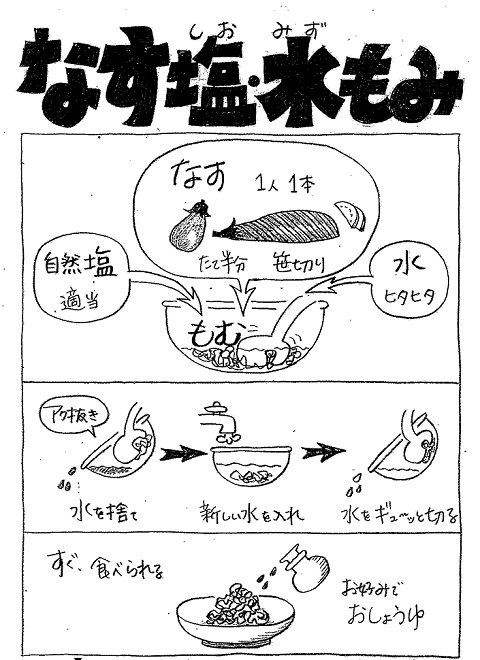 しお みず
なす塩・水もみ
なす 1人 1本
たて半分 笹切り
自然塩
適当
水
ヒタヒタ
もむ
アク抜き
水を捨て
新しい水を入れ
水をギューッと切る
すぐ、食べられる
お好みで
おしょうゆ